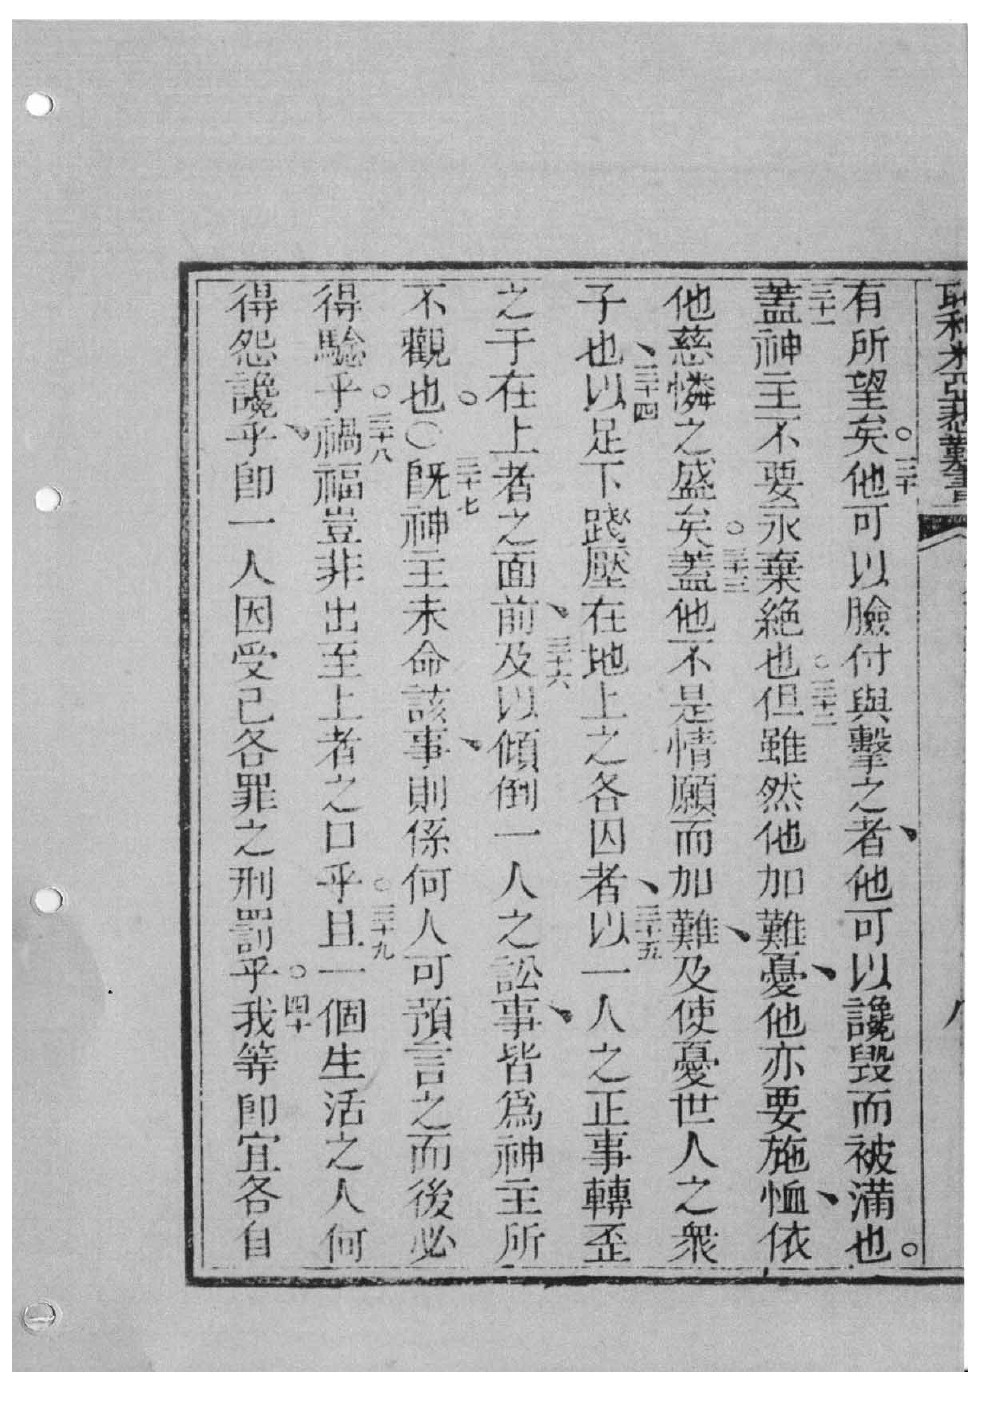 耶利米亞悲難書 八
有所望矣。三十他可以臉付與擊之者、他可以讒毀而被滿也。
三十一蓋神主不要永棄絕也。三十二但雖然他加難憂、他亦要施恤、依
他慈憐之盛矣。三十三蓋他不是情願而加難、及使憂世人之衆
子也、三十四以足下踐壓在地上之各囚者、三十五以一人之正事轉歪
之于在上者之面前、三十六及以傾倒一人之訟事、皆爲神主所
不觀也。〇三十七旣神主未命該事、則係何人可預言之而後必
得騐乎。三十八禍福豈非出至上者之口乎。三十九且一個生活之人何
得怨讒乎、卽一人因受己各罪之刑罰乎。四十我等卽宜各自